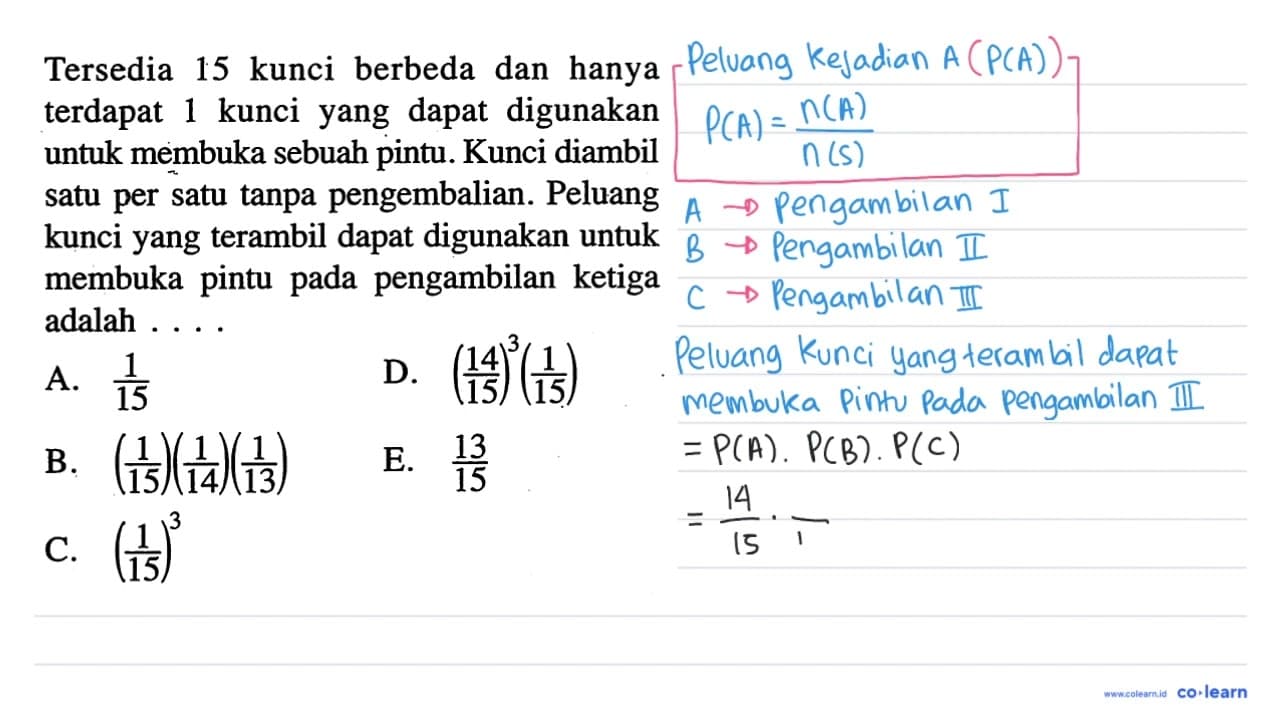 Tersedia 15 kunci berbeda dan hanya
terdapat 1 kunci yang dapat digunakan
untuk membuka sebuah pintu. Kunci diambil
satu per satu tanpa pengembalian. Peluang
kunci yang terambil dapat digunakan untuk
membuka pintu pada pengambilan ketiga
adalah . . . .
A. 1/15
D. (14/15)^3 (1/15)
B. (1/15)(1/14)(1/13)
E. 13/15
C. (1/15)^3
Peluang Kejadian A (P(A))
P(A) = n(A)/n(S)
A → Pengambilan I
B → Pengambilan II
C → Pengambilan III
Peluang Kunci yang terambil dapat
membuka Pintu Pada Pengambilan III
= P(A). P(B). P(C)
= 14/15 . /1
www.colearn.id co·learn